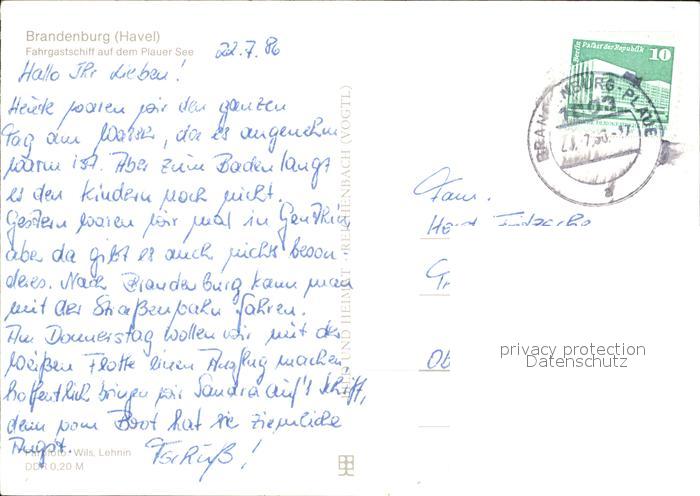 Brandenburg (Havel)
Fahrgastschiff auf dem Plauer See
22.7.86
Hallo Ihr Lieben!
Heute waren wir den ganzen
Tag am Wasser, da es angenehm
warm ist. Aber zum Baden langt
es den Kindern noch nicht.
Gestern waren wir mal in Genthin
aber da gibt es auch nichts beson-
deres. Nach Brandenburg kann man
mit der Straßenbahn fahren.
Am Donnerstag wollen wir mit der
Weißen Flotte einen Ausflug machen
hoffentlich bringen wir Sandra auf's Schiff,
denn vom Boot hat sie ziemliche
Angst.
Tschüß!
Wils, Lehnin
DDR 0,20 M
BILD UND HEIMAT REICHENBACH (VOGTL)
Berlin Palast der Republik
10
BRANDENBURG-PLAUE
a
Fam.
Ob
privacy protection
Datenschutz